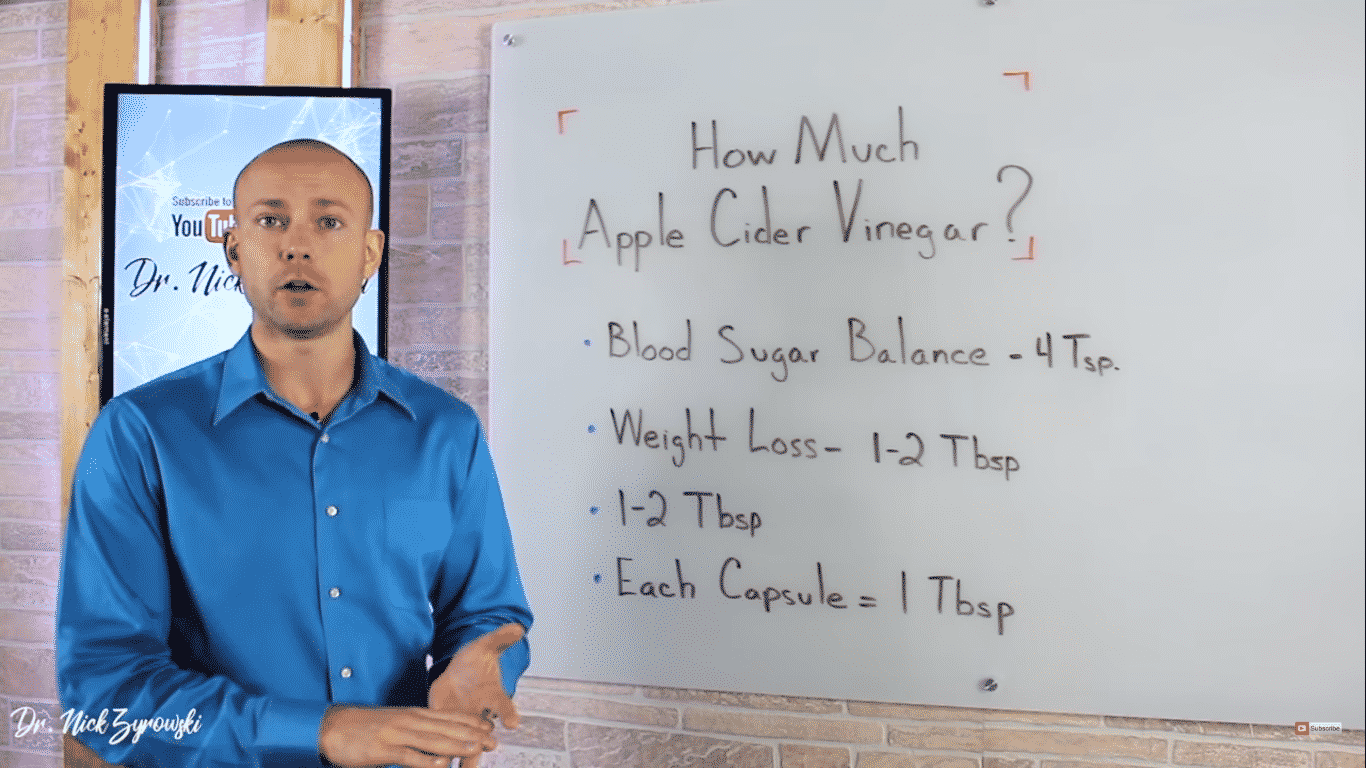 How Much
Apple Cider Vinegar?
• Blood Sugar Balance - 4 Tsp.
• Weight Loss - 1-2 Tbsp
• 1-2 Tbsp
• Each Capsule = 1 Tbsp
Subscribe to
YouTu
Dr. Nick
Dr. Nick Zyrowski
Subscribe